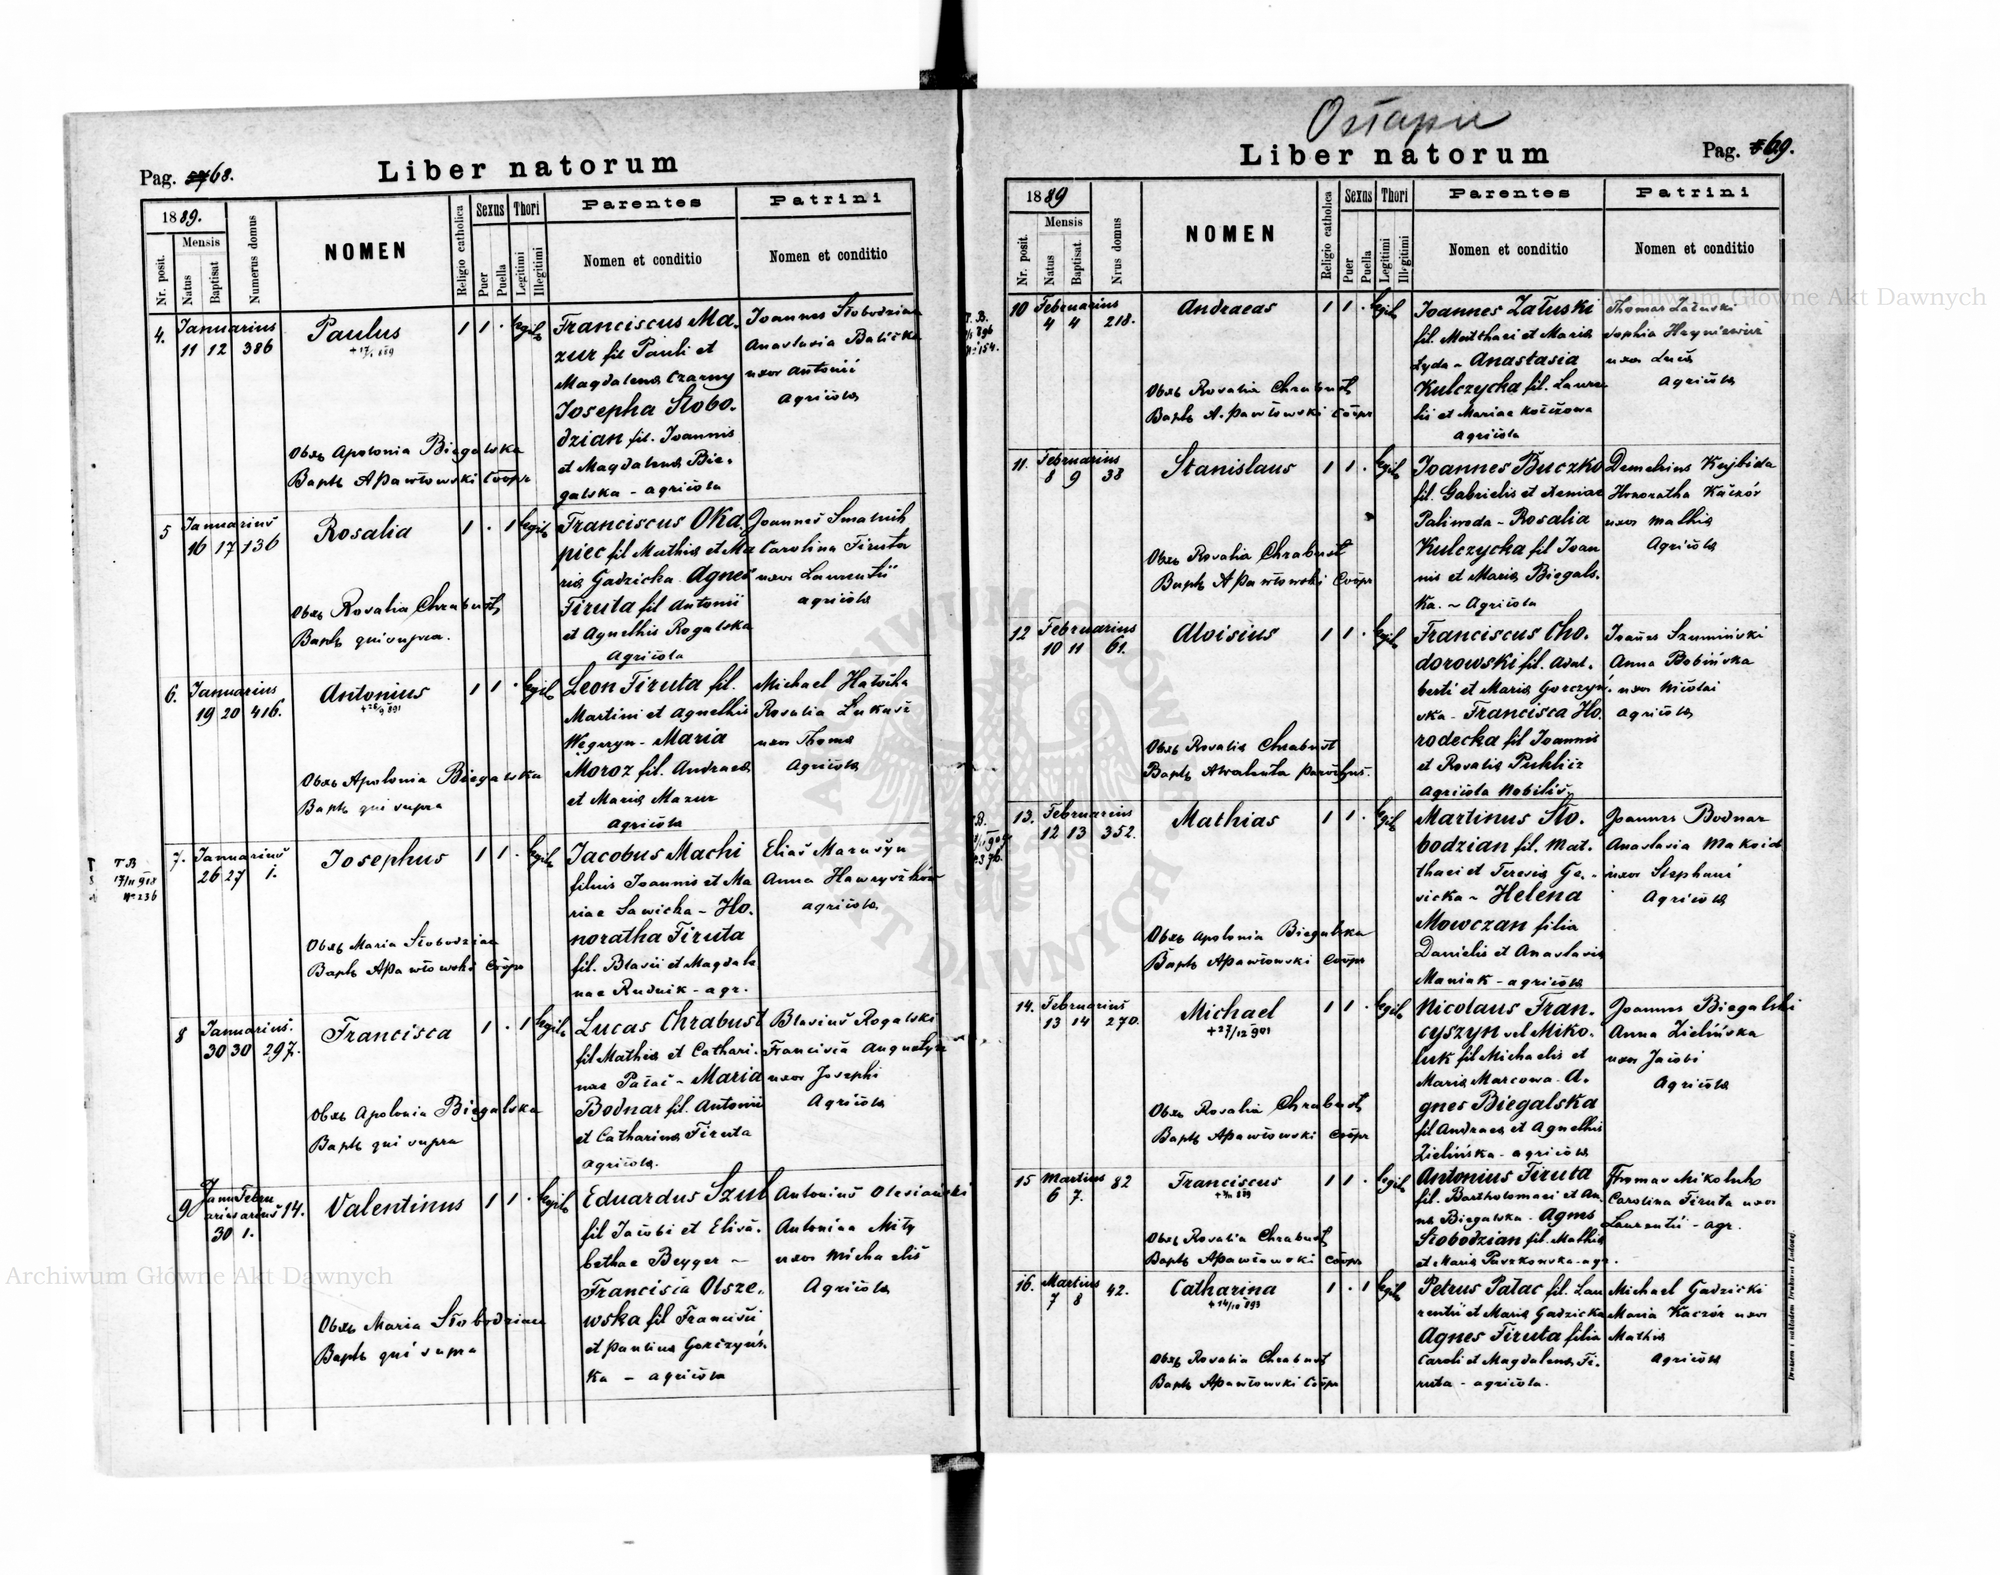 Pag. 68.
Liber natorum
1889.
Nr. posit.
Mensis
Natus
Baptisat
Numerus domus
NOMEN
Religio catholica
Sexus
Puer
Puella
Thori
Legitimi
Illegitimi
Parentes
Nomen et conditio
Patrini
Nomen et conditio
4. Januarius
11 12 386
Paulus
1 1 . legit
Obst Apolonia Biegalska
Bapt APawłowski Coopr
Franciscus Ma-
zur fil Pauli et
Magdalena Czarny
Josepha Słobo-
dzian fil. Joannis
et Magdalena Bie-
galska - agricola
Joannes Słobodzian
Anastasia Balicka
uxor Antonii
Agricola
5 Januarius
16 17 136
Rosalia
1 . 1 legit
Obst Rosalia Chrabust
Bapt qui supra.
Franciscus Oka-
piec fil Mathia et Ma
ria Gadzicka Agnes
Firuta fil Antonii
et Agnethis Rogalska
Agricola
Joannes Smalnik
Carolina Firuta
uxor Laurentii
agricola
6. Januarius
19 20 416.
Antonius
1 1 . legit
Obst Apolonia Biegalska
Bapt qui supra
Leon Firuta fil.
Martini et Agnethis
Węgrzyn - Maria
Moroz fil. Andreas
et Maria Mazur
agricola
Michael
Rosalia Lukasz
uxor Thoma
Agricola
T.B
Nº 236
7. Januarius
26 27 1.
Josephus
1 1 . legit
Obst Maria Słobodzian
Bapt APawłowski Coopr
Jacobus Machi
filius Joannis et Ma
riae Sawicka - Ho-
noratha Firuta
fil. Blasii et Magdale
nae Rudnik - agr.
Elias Maruszyn
Anna
agricola
8 Januarius.
30 30 297.
Francisca
1 . 1 legit
Obst Apolonia Biegalska
Bapt qui supra
Lucas Chrabust
fil Mathia et Cathari-
nae Pałac - Maria
Bodnar fil. Antonii
et Catharina Firuta
agricola.
Blasius Rogalski
Francisca Augustyn
uxor Josephi
Agricola
9 Janu Febru
arius arius 14.
30 1.
Valentinus
1 1 . legit
Obst Maria Słobodzian
Bapt qui supra
Eduardus Szul
fil Jacobi et Elisa-
bethae Beyger -
Francisca Olsze-
wska fil Francisci
et Paulina Gorczyńs-
ka - agricola
Antonius Olesianicki
Antonina Mity
uxor Michaelis
Agricola
Ostapie
Liber natorum
Pag. 69.
1889
Nr. posit.
Mensis
Natus
Baptisat
Nrus domus
NOMEN
Religio catholica
Sexus
Puer
Puella
Thori
Legitimi
Illegitimi
Parentes
Nomen et conditio
Patrini
Nomen et conditio
T.B.
Nº 154.
10 Februarius
4 4 218.
Andraeas
1 1 . legit
Obst Rosalia Chrabust
Bapt A. Pawłowski Coopr
Joannes Załuski
fil. Matthaei et Maria
Lyda - Anastasia
Kulczycka fil. Lauren
tii et Mariae
agricola
Thomas Załuski
Sophia
uxor Luca
Agricola
11. Februarius
8 9 38
Stanislaus
1 1 . legit
Obst Rosalia Chrabust
Bapt APawłowski Coopr
Joannes Buczko
fil. Gabrielis et Xeniae
Paliwoda - Rosalia
Kulczycka fil Joan
nis et Maria Biegals-
ka. - Agricola
Demetrius Kujbida
Honoratha Kaczór
uxor Mathia
Agricola
12 Februarius
10 11 61.
Aloisius
1 1 . legit
Obst Rosalia Chrabust
Franciscus Cho-
dorowski fil. Adal-
berti et Maria Gorczyń-
ska - Francisca Ho-
rodecka fil Joannis
et Rosalia Publicz
agricola Nobilis
Joannes Szumiński
Anna Bobińska
uxor Nicolai
agricola
T.B.
13. Februarius
12 13 352.
Mathias
1 1 . legit
Obst Apolonia Biegalska
Bapt APawłowski Coopr
Martinus Sło-
bodzian fil. Mat-
thaei et Teresia Ge-
sicka - Helena
Mowczan filia
Danielis et Anastasia
Maniak - agricola
Joannes Bodnar
Anastasia
uxor Stephani
Agricola
14. Februarius
13 14 270.
Michael
+27/12 901
1 1 . legit
Obst Rosalia Chrabust
Bapt APawłowski Coopr
Nicolaus Fran-
cyszyn vel Miko-
luk fil Michaelis et
Maria Marcowa - A-
gnes Biegalska
fil Andrea et Agnethis
Zielińska - agricola
Joannes Biegalski
Anna Zielińska
uxor Jacobi
Agricola
15 Martius 82
6 7.
Franciscus
1 1 . legit
Obst Rosalia Chrabust
Bapt APawłowski Coopr
Antonius Firuta
fil. Bartholomaei et An-
na Biegalska - Agnes
Słobodzian fil. Mathia
et Maria Paszkowska - agr.
Thomas Mikoluk
Carolina Firuta uxor
Laurentii - agr.
16. Martius 42.
7 8
Catharina
+14/10 893
1 . 1 legit
Obst Rosalia Chrabust
Bapt APawłowski Coopr
Petrus Pałac fil. Lau
rentii et Maria Gadzicka
Agnes Firuta filia
Caroli et Magdalena Fi-
ruta - agricola.
Michael Gadzicki
Maria Kaczór uxor
Mathia
Agricola
Archiwum Główne Akt Dawnych
Archiwum Główne Akt Dawnych